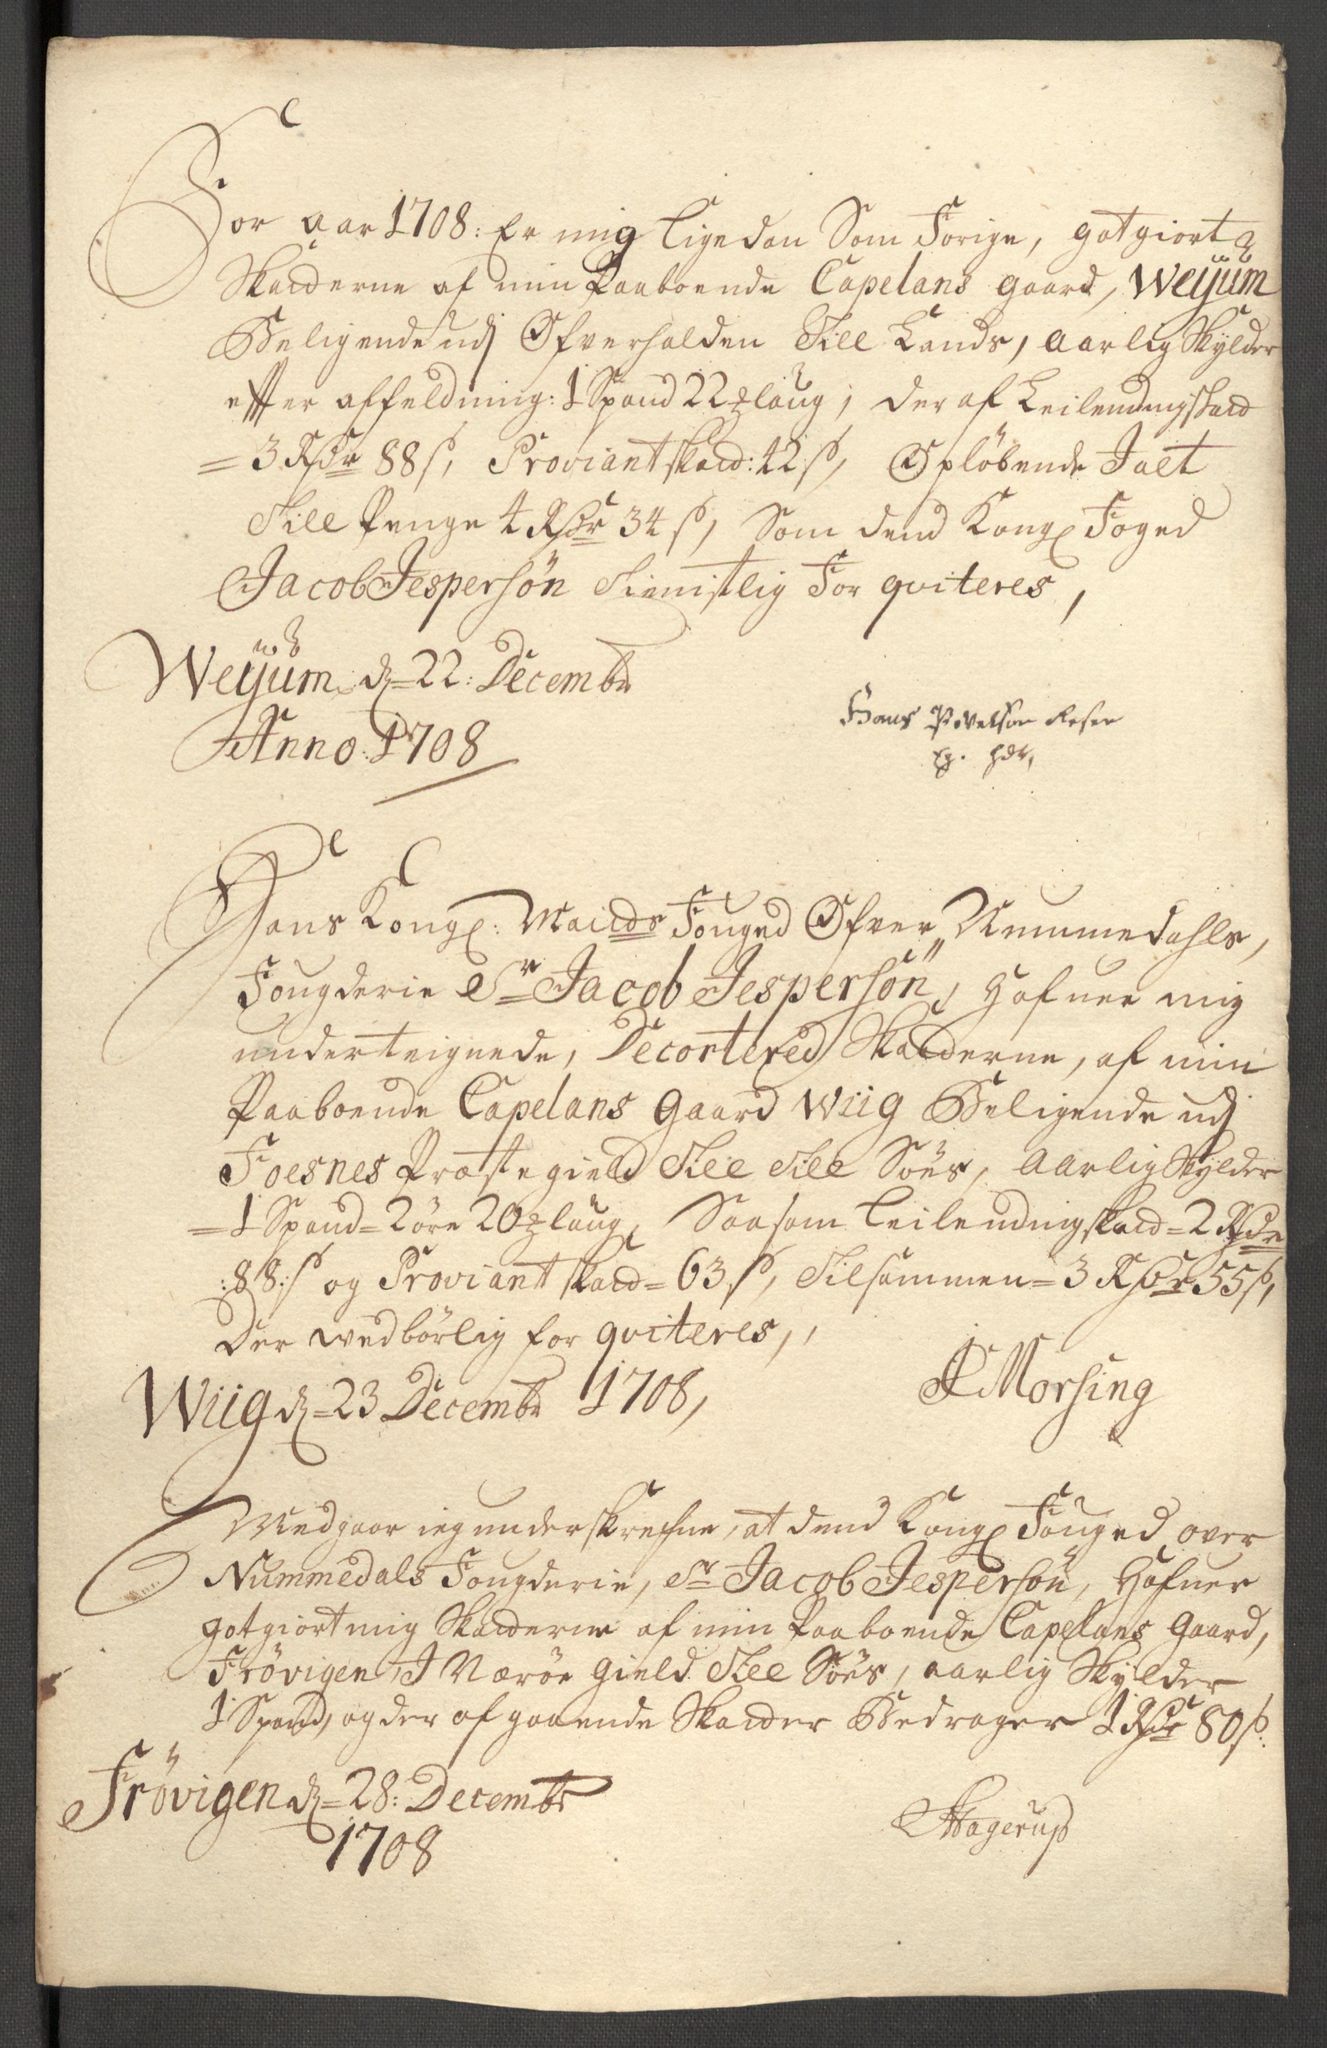 For aar 1708: Er mig ligedan Som Forige, gotgiort
Skatterne af min Paaboende Capelans gaard, Weÿum
Beligende udj Ofverhalden Till Lands, aarlig Skylder
efter affeldning: 1 Spand 22 laug, der af Leilendingskatt
= 3 Rdr 88 s, Proviantskatt: 42 s, Opløbende J alt
Till Penge 4 Rdr 34 s, Som dend Kongl Foged
Jacob Jespersøn tienistlig For qviteres,
Weÿum d = 22: Decembr
Anno: 1708
Hans Povelsøn Resen
Hans Kongl: Maitts Fouged Ofver Nummedahls,
Fougderie Sr Jacob Jespersøn, Hafuer mig
underteignede, Decortered Skatterne, af min
Paaboende Capelans gaard Wiig Beligende udj
Foesnes Præstegield Till Till Søes, Aarlig Skylder
= 1 Spand = 2 øre 20 laug, Saasom Leilendingskatt = 2 Rdr
:88: s og Proviantskatt = 63 s, Tilsammen = 3 Rdr 55 s,
Der wedbørlig for qviteres,,
Wiig d = 23 Decembr 1708,
Morsing
Medgaar ieg underskrefne, at dend Kongl Fouged over
Nummedals Fougderie, Sr Jacob Jespersøn, Hafuer
gotgiort mig Skatterne af min Paaboende Capelans Gaard,
Frøvigen, J Nærøe Gield Till Søes, aarlig Skylder
1 Spand, og der af gaaende Skatter Bedrager 1 Rdr 80 s:
Frøvigen d = 28: Decembr
1708
Hagerup